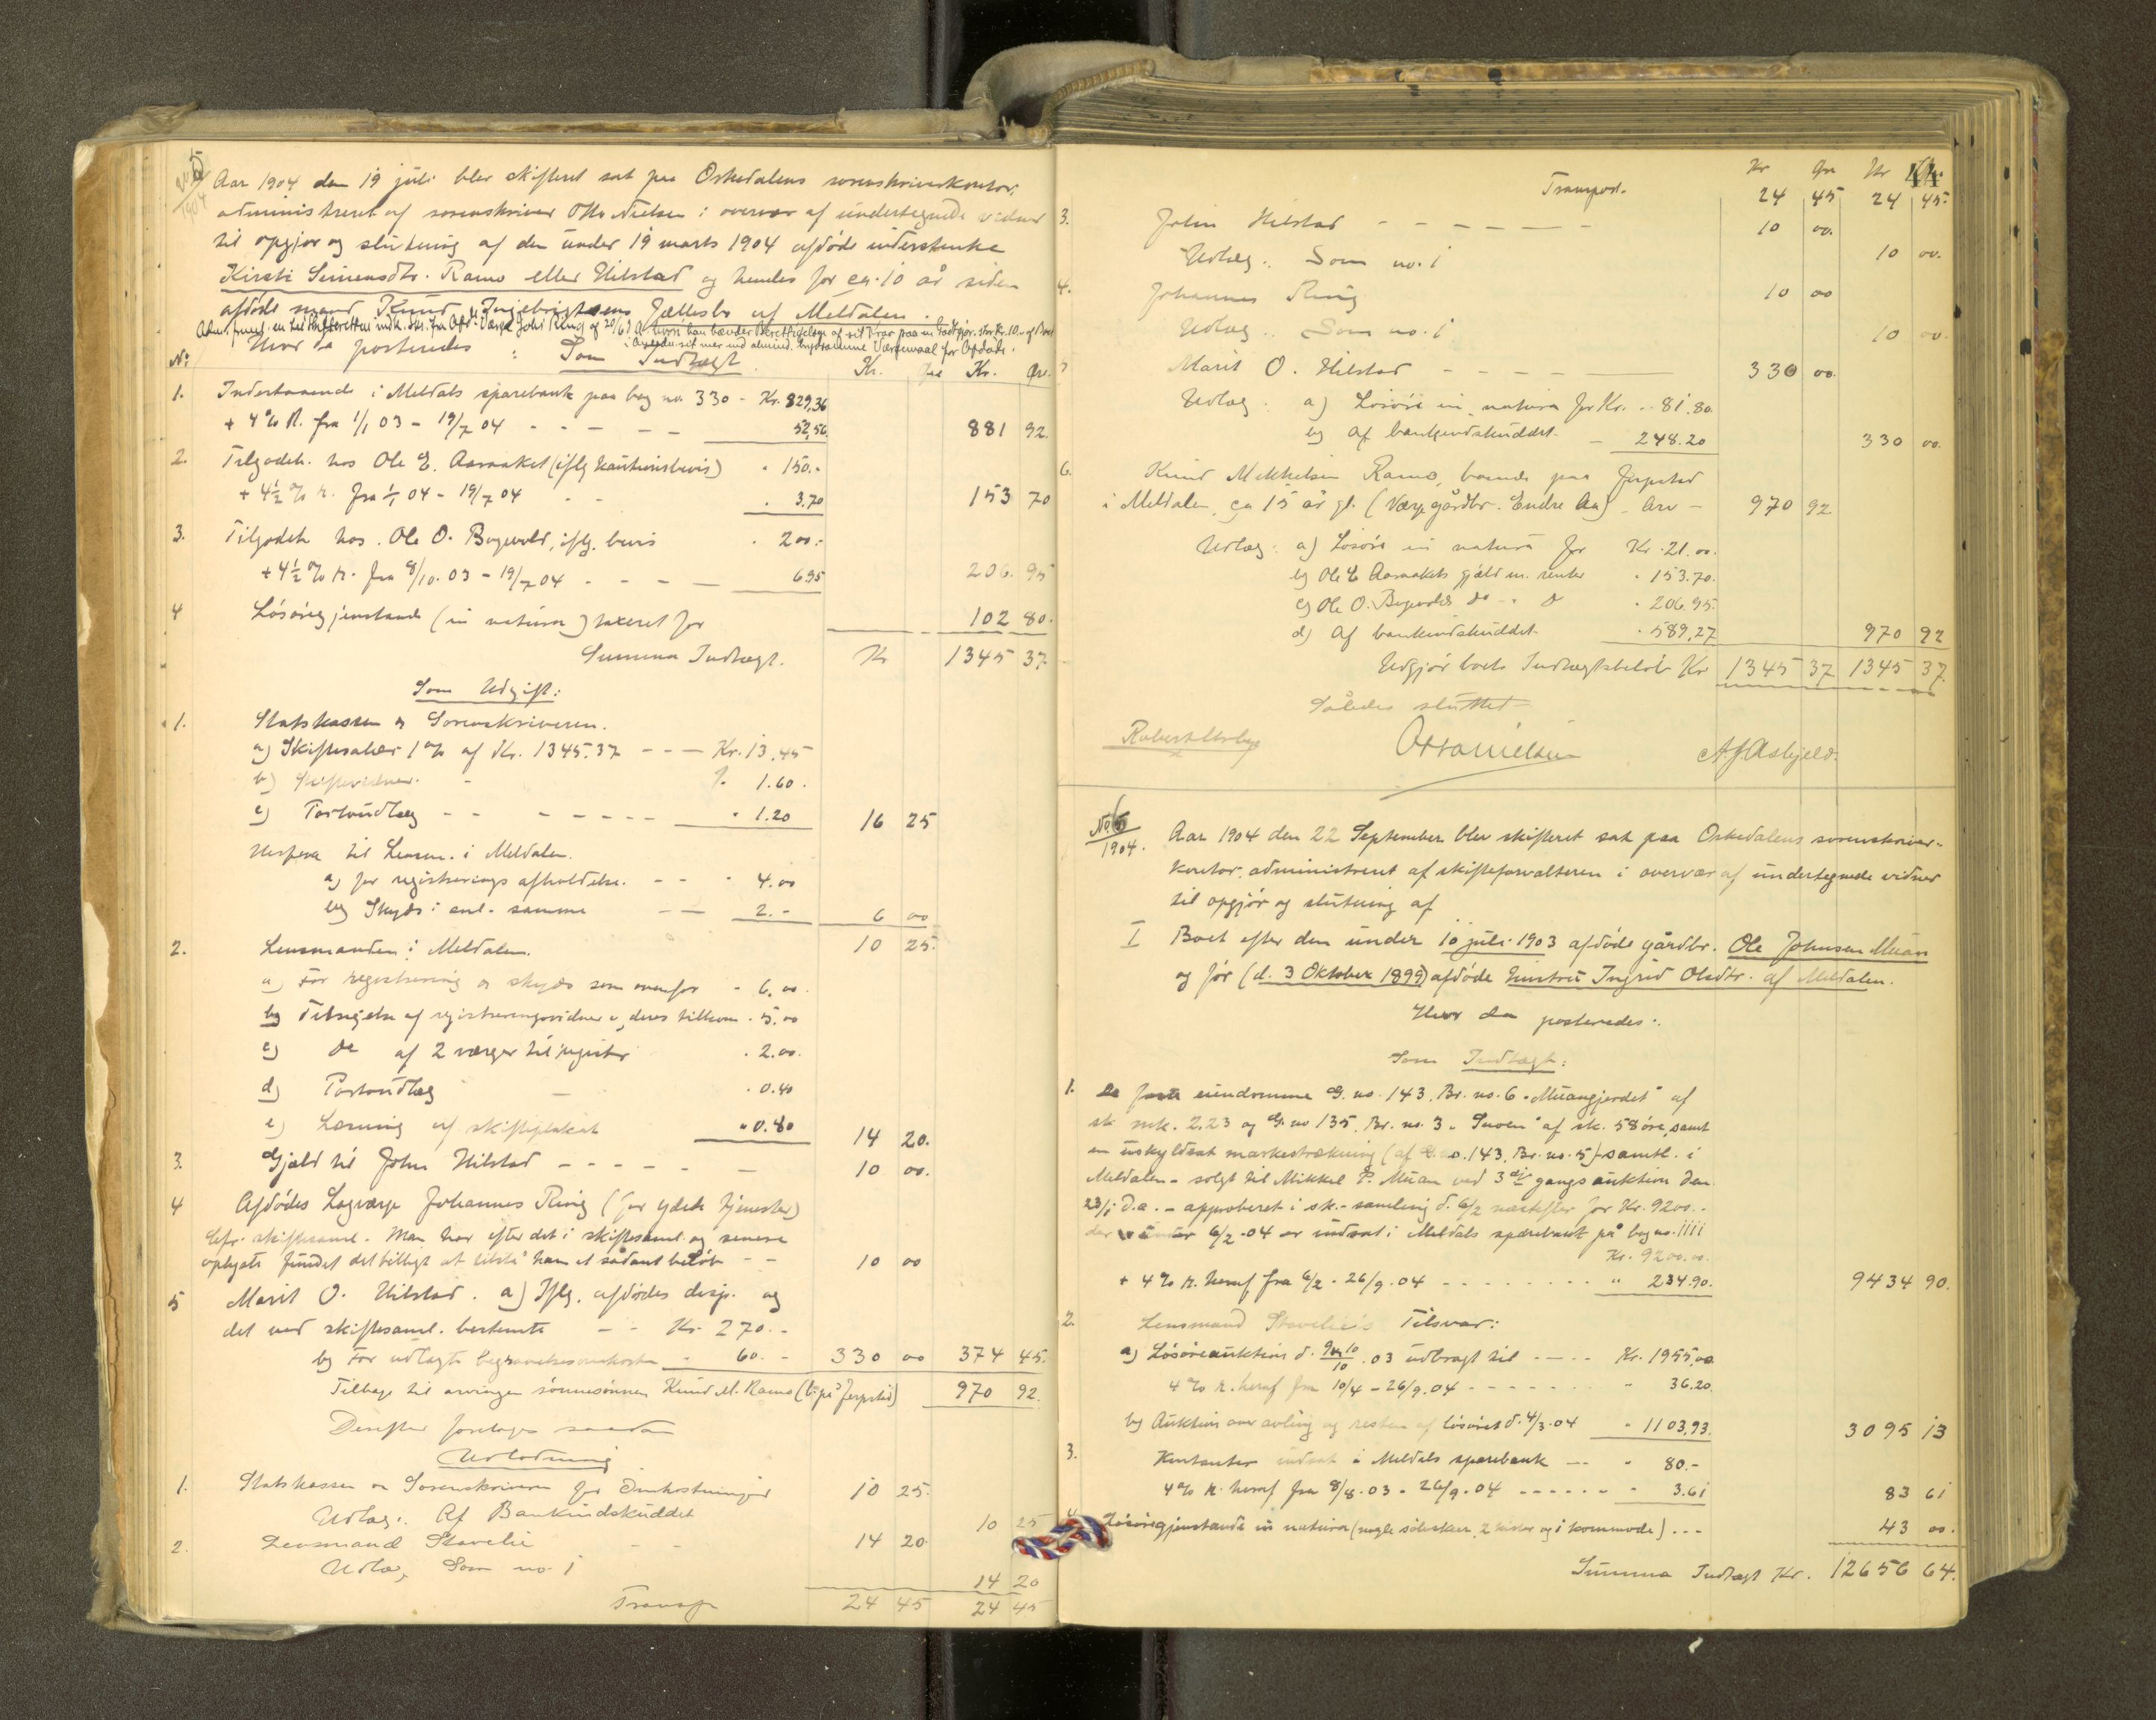 No. 5
1904
Aar 1904 den 19 juli blev skifteret sat paa Orkedalens sorenskriverkontor,
administreret af sorenskriver Otto Nielsen i overvær af undertegnede vidner
til opgjør og slutning af den under 19 marts 1904 afdøde inderstenke
Kirsti Simensdtr. Ramo eller Hilstad og hendes for ca. 10 år siden
afdøde mand Knud Ingebrigtsens fællesbo af Meldalen.
Hvor da posteredes: Som Indtægt
No Kr. Øre Kr. Øre
1. Indestaaende i Meldals sparebank paa bog no 330 - Kr. 829,36
+ 4% R. fra 1/1 03 - 19/7 04 - - - - - 52,56 881 92.
2. Tilgodeh. hos Ole E. Aamaaket (iflg kautionsbevis) " 150.-
+ 4½ % r. fra 1/1 04 - 19/7 04 - - " 3.70 153 70
3. Tilgodeh hos Ole O. Bogevold, iflg. bevis " 200.-
+ 4½ % r. fra 8/10. 03 - 19/7 04 - - - - 6.95 206.95
4 Løsøregjenstande (in natura) taxeret for 102 80.
Summa Indtægt. Kr 1345 37
Som Udgift:
1. Statskassen og Sorenskriveren.
a) Skiftesalær 1% af Kr. 1345.37 - - - Kr. 13.45
b) Skiftevidner. - " 1.60.
c) Portoudlæg - - - - - - - " 1.20 16 25
til Lensm. i Meldalen.
a) for registrerings afholdelse. - - " 4.00
b) Skyds i anl. samme - - 2.- 6 00
10 25.
2. Lensmanden i Meldalen.
a) For registrering og skyds som ovenfor - 6.00.
b) Tilsigelse af registreringsvidner o, deres tilkom. 5.00
c) do af 2 værger til " 2.00.
d) Portoudlæg - " 0.40
e) Læsning af skifteplakat " 0.80 14 20.
3. Gjæld til John Hilstad - - - - - - 10 00.
4 Afdødes Lagværge Johannes Ring (for ydede tjenester)
cfr. skiftesaml. Man har efter det i skiftesaml. og senere
oplyste fundet det billigt at tilstå ham et sådant beløb - - 10 00
5 Marit O. Hilstad. a) Iflg. afdødes disp. og
det ved skiftesaml. bestemte - - Kr. 270.-
b) For udlagte begravelsesomkostn. - 60.- 330 00 374 45.
Tilbage til arvingen sønnesønnen Knud M. Ramo (b. på Jerpstad) 970 92.
Derefter foretages saadan
Udlodning
1. Statskassen og Sorenskriveren for Omkostninger 10 25.
Udlæg: Af Bankindskuddet 10 25
2. Lensmand Stavelie - - 14 20.
Udlæg, Som no. 1 14 20
Transp 24 45 24 45
Kr Øre Kr Øre
44
Transport. 24 45 24 45.
3. John Hilstad - - - - - - 10 00.
Udlæg: Som no. 1 10 00.
4. Johannes Ring 10 00
Udlæg: Som no. 1 10 00.
Marit O. Hilstad - - - - - 330 00.
Udlæg: a) Løsøre in natura for Kr. .. 81.80.
b) Af bankindskuddet. - 248.20 330 00.
6. Knud Mikkelsen Ramo, boende paa Jerpstad
i Meldalen, ca 15 år gl. (Værge gårdbr. Endre Aa) Arv - 970 92
Udlæg: a) Løsøre in natura for Kr. 21.00.
b) Ole E Aamaakets gjæld m. renter " 153.70.
c) Ole O. Bogevolds do " do " 206.95.
d) Af bankindskuddet. " 589,27 970 92
Udgjør boets Indtægtsbeløb Kr 1345 37 1345 37.
Således sluttet
Otto Nielsen
No 6
1904.
Aar 1904 den 22 September blev skifteret sat paa Orkedalens sorenskriver-
kontor, administreret af skifteforvalteren i overvær af undertegnede vidner
til opgjør og slutning af
I Boet efter den under 10 juli 1903 afdøde gårdbr. Ole Johnsen Muan
og før (d. 3 Oktober 1899) afdøde hustru Ingrid Olsdtr. af Meldalen.
Hvor da posteredes:
Som Indtægt:
1. De faste eiendomme G. no. 143, Br. no. 6 "Muangjerdet" af
sk. mrk. 2.23 og G. no 135, Br. no. 3 "Snoen" af sk. 58 øre, samt
en uskyldsat markestrækning (af G. no. 143, Br. no. 5) - samtl. i
Meldalen - solgt til Mikkel P. Muan ved 3die gangs auktion den
23/1 d.a. - approberet i sk.-samling d. 6/2 næstefter for Kr. 9200.-
der under 6/2-04 er indsat i Meldals sparebank på bog no. 1111
Kr. 9200.00.
+ 4% R. heraf fra 6/2 - 26/9. 04 - - - - - - - - " 234.90. 9434 90.
2. Lensmand Stavelie's Tilsvar:
a) Løsøreauktion d. 9 og 10/10 .03 udbragt til - - - - Kr. 1955,00
4% R. heraf fra 10/4 - 26/9. 04 - - - - - - - " 36.20.
b) Auktion over avling og resten af løsøret d. 4/3.04 " 1103,93. 3095 13
3. Kontanter indsat i Meldals sparebank - - - " 80.-
4% R. heraf fra 8/8. 03 - 26/9. 04 - - - - - - " 3.61 83 61
4. Løsøregjenstande in natura (nogle sølvskeer, 2 kister og 1 kommode) - - - 43 00.
Summa Indtægt Kr. 12656 64.